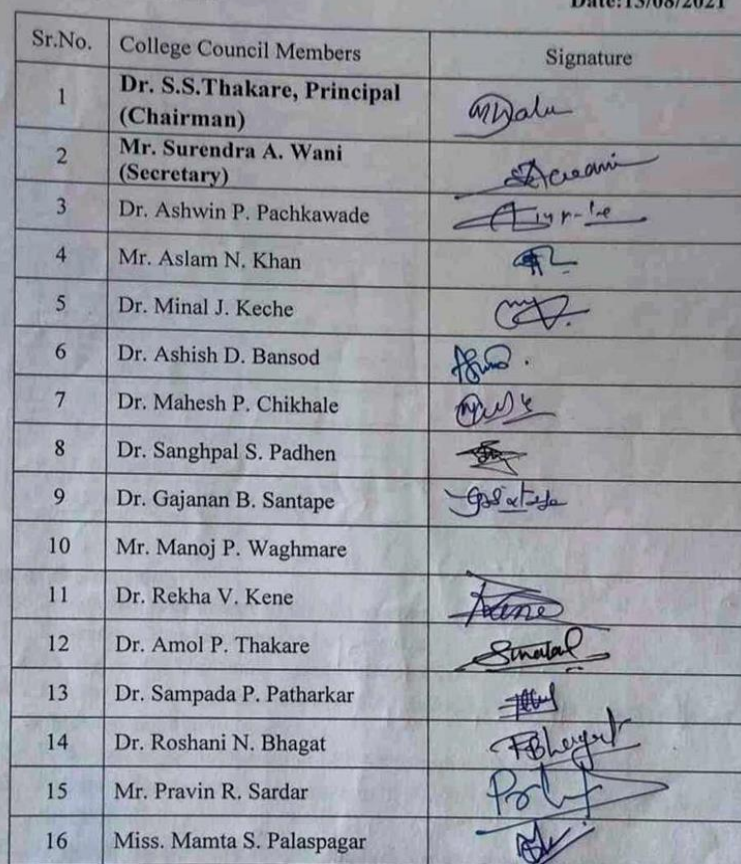 Date:13/08/2021
Sr.No. College Council Members Signature
1 Dr. S.S.Thakare, Principal
(Chairman)
2 Mr. Surendra A. Wani
(Secretary)
3 Dr. Ashwin P. Pachkawade
4 Mr. Aslam N. Khan
5 Dr. Minal J. Keche
6 Dr. Ashish D. Bansod
7 Dr. Mahesh P. Chikhale
8 Dr. Sanghpal S. Padhen
9 Dr. Gajanan B. Santape
10 Mr. Manoj P. Waghmare
11 Dr. Rekha V. Kene
12 Dr. Amol P. Thakare
13 Dr. Sampada P. Patharkar
14 Dr. Roshani N. Bhagat
15 Mr. Pravin R. Sardar
16 Miss. Mamta S. Palaspagar